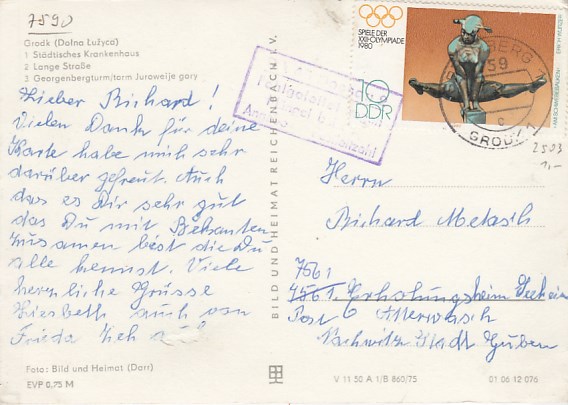 7590
Grodk (Dolna Łužyca)
1 Städtisches Krankenhaus
2 Lange Straße
3 Georgenbergturm/torm Juroweje gory
Lieber Richard!
Vielen Dank für deine
Karte habe mich sehr
darüber gefreut. Auch
das es Dir sehr gut
das Du mit Bekanten
zusamen bist die Du
alle kennst. Viele
herzliche Grüsse
auch von
Frieda
Foto: Bild und Heimat (Darr)
EVP 0,75 M
BILD UND HEIMAT REICHENBACH i. V.
SPIELE DER
XXII. OLYMPIADE
1980
10
DDR
59
GRODK
2503
1,-
Herrn
Richard Metasch
7561
7561 Erholungsheim
Post Atterwasch
Guben
V 11 50 A 1/B 860/75
01 06 12 076